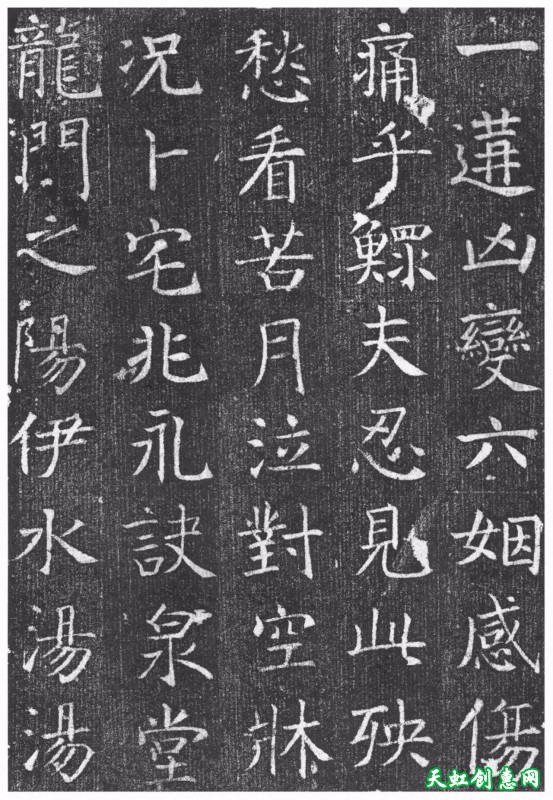 一遘凶變六姻感傷
痛乎鰥夫忍見此殃
愁看苦月泣對空牀
况卜宅兆永訣泉堂
龍門之陽伊水湯湯
天虹创惠网